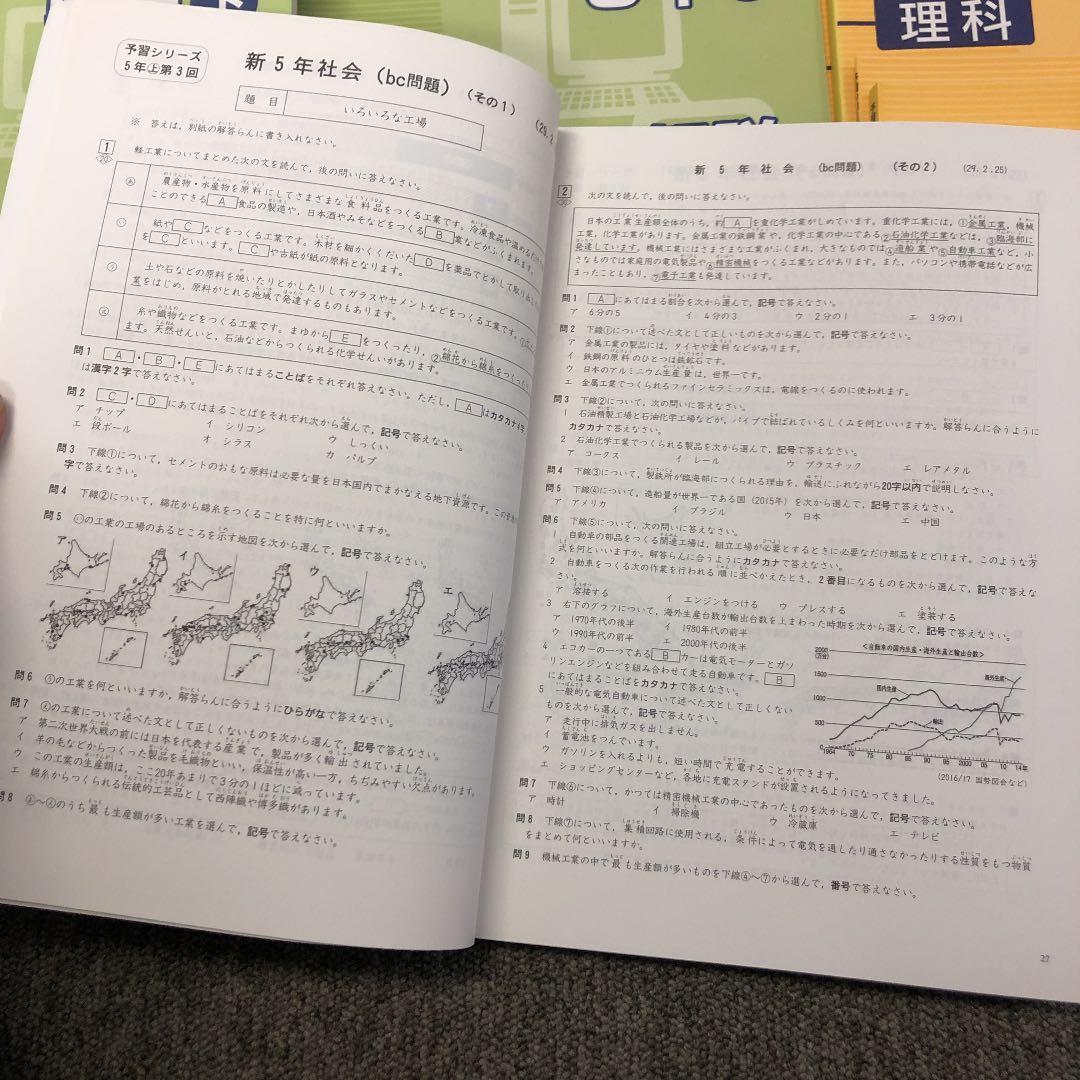 理科
予習シリーズ
5年㊤第3回
新5年社会（bc問題）（その1）
題目 いろいろな工場
※ 答えは，別紙の解答らんに書き入れなさい。
1
20
軽工業についてまとめた次の文を読んで，後の問いに答えなさい。
農産物・水産物を原料にしてさまざまな食料品をつくる工業です。冷凍食品や温めるだけ
ことのできる A 食品の製造や，日本酒やみそなどをつくる B 業などがふくまれます。
紙や C などをつくる工業です。木材を細かくくだいた D を薬品でとかして取り出し
を C といいます。 C や古紙が紙の原料となります。
土や石などの原料を焼いたりとかしたりしてガラスやセメントなどをつくる工業
業をはじめ，原料がとれる地域で発達するものもあります。
糸や織物などをつくる工業です。まゆから E をつくったり，②綿花から綿糸をつくったり
ます。天然せんいと，石油などからつくられる化学せんいがあります。
問1 A ・ B ・ E にあてはまることばをそれぞれ答えなさい。ただし， A はカタカナ4字
は漢字2字で答えなさい。
問2 C ・ D にあてはまることばをそれぞれ次から選んで，記号で答えなさい。
ア チップ イ シリコン ウ しっくい
エ 段ボール オ シラス カ パルプ
問3 下線①について，セメントのおもな原料は必要な量を日本国内でまかなえる地下資源です。この
字で答えなさい。
問4 下線②について，綿花から綿糸をつくることを特に何といいますか。
問5 ○いの工業の工場のあるところを示す地図を次から選んで，記号で答えなさい。
ア イ ウ エ
問6 ○うの工業を何といいますか，解答らんに合うようにひらがなで答えなさい。
問7 ○えの工業について述べた文として正しくないものを次から選んで，記号で答えなさい。
ア 第二次世界大戦の前には日本を代表する産業で，製品が多く輸出されていました。
イ 羊の毛などからつくった製品を毛織物といい，保温性が高い一方，ちぢみやすい欠点があります。
ウ この工業の生産額は，ここ20年あまりで3分の1ほどに減っています。
エ 綿糸からつくられる伝統的工芸品として西陣織や博多織があります。
問8 ○あ～○えのうち最も生産額が多い工業を選んで，記号で答えなさい。
新5年社会（bc問題）（その2）（29.2.25）
2
次の文を読んで，後の問いに答えなさい。
日本の工業生産額全体のうち，約 A を重化学工業がしめています。重化学工業には，①金属工業，機械
工業，化学工業があります。金属工業の鉄鋼業や，化学工業の中心である②石油化学工業などは，③臨海部に
発達しています。機械工業にはさまざまな工業がふくまれ，大きなものでは④造船業や⑤自動車工業など，小
さなものでは家庭用の電気製品や⑥精密機械をつくる工業などがあります。また，パソコンや携帯電話などが広
まったこともあり，⑦電子工業も発達しています。
問1 A にあてはまる割合を次から選んで，記号で答えなさい。
ア 6分の5 イ 4分の3 ウ 2分の1 エ 3分の1
問2 下線①について述べた文として正しいものを次から選んで，記号で答えなさい。
ア 金属工業の製品には，タイヤや塗料などがあります。
イ 鉄鋼の原料のひとつは鉄鉱石です。
ウ 日本のアルミニウム生産量は，世界一です。
エ 金属工業でつくられるファインセラミックスは，電線をつくるのに使われます。
問3 下線②について，次の問いに答えなさい。
1 石油精製工場と石油化学工場などが，パイプで結ばれているしくみを何といいますか。解答らんに合うように
カタカナで答えなさい。
2 石油化学工業でつくられる製品を次から選んで，記号で答えなさい。
ア コークス イ レール ウ プラスチック エ レアメタル
問4 下線③について，製鉄所が臨海部につくられる理由を，輸送にふれながら20字以内で説明しなさい。
問5 下線④について，造船量が世界一である国（2015年）を次から選んで，記号で答えなさい。
ア アメリカ イ ブラジル ウ 日本 エ 中国
問6 下線⑤について，次の問いに答えなさい。
1 自動車の部品をつくる関連工場は，組立工場が必要とするときに必要なだけ部品をとどけます。このような方
式を何といいますか。解答らんに合うようにカタカナで答えなさい。
2 自動車をつくる次の作業を行われる順に並べかえたとき，2番目になるものを次から選んで，記号で答えな
さい。
ア 溶接する イ エンジンをつける ウ プレスする エ 塗装する
3 右下のグラフについて，海外生産台数が輸出台数を上まわった時期を次から選んで，記号で答えなさい。
ア 1970年代の後半 イ 1980年代の前半
ウ 1990年代の前半 エ 2000年代の後半
4 エコカーの一つである B カーは電気モーターとガソ
リンエンジンなどを組み合わせて走る自動車です。 B
にあてはまることばをカタカナで答えなさい。
5 一般的な電気自動車について述べた文として正しくない
ものを次から選んで，記号で答えなさい。
ア 走行中に排気ガスを出しません。
イ 蓄電池をつんでいます。
ウ ガソリンを入れるよりも，短い時間で充電することができます。
エ ショッピングセンターなど，各地に充電スタンドが設置されるようになってきました。
＜自動車の国内生産・海外生産と輸出台数＞
2000
(万台)
1500
1000
500
0
国内生産
海外生産
輸出
1964 70 75 80 85 90 95 2000 05 10 14年
（2016/17 国勢図会など）
問7 下線⑥について，かつては精密機械工業の中心であったものを次から選んで，記号で答えなさい。
ア 時計 イ 掃除機 ウ 冷蔵庫 エ テレビ
問8 下線⑦について，集積回路に使用される，条件によって電気を通したり通さなかったりする性質をもつ物質
をまとめて何といいますか。
問9 機械工業の中で最も生産額が多いものを下線④～⑦から選んで，番号で答えなさい。
27